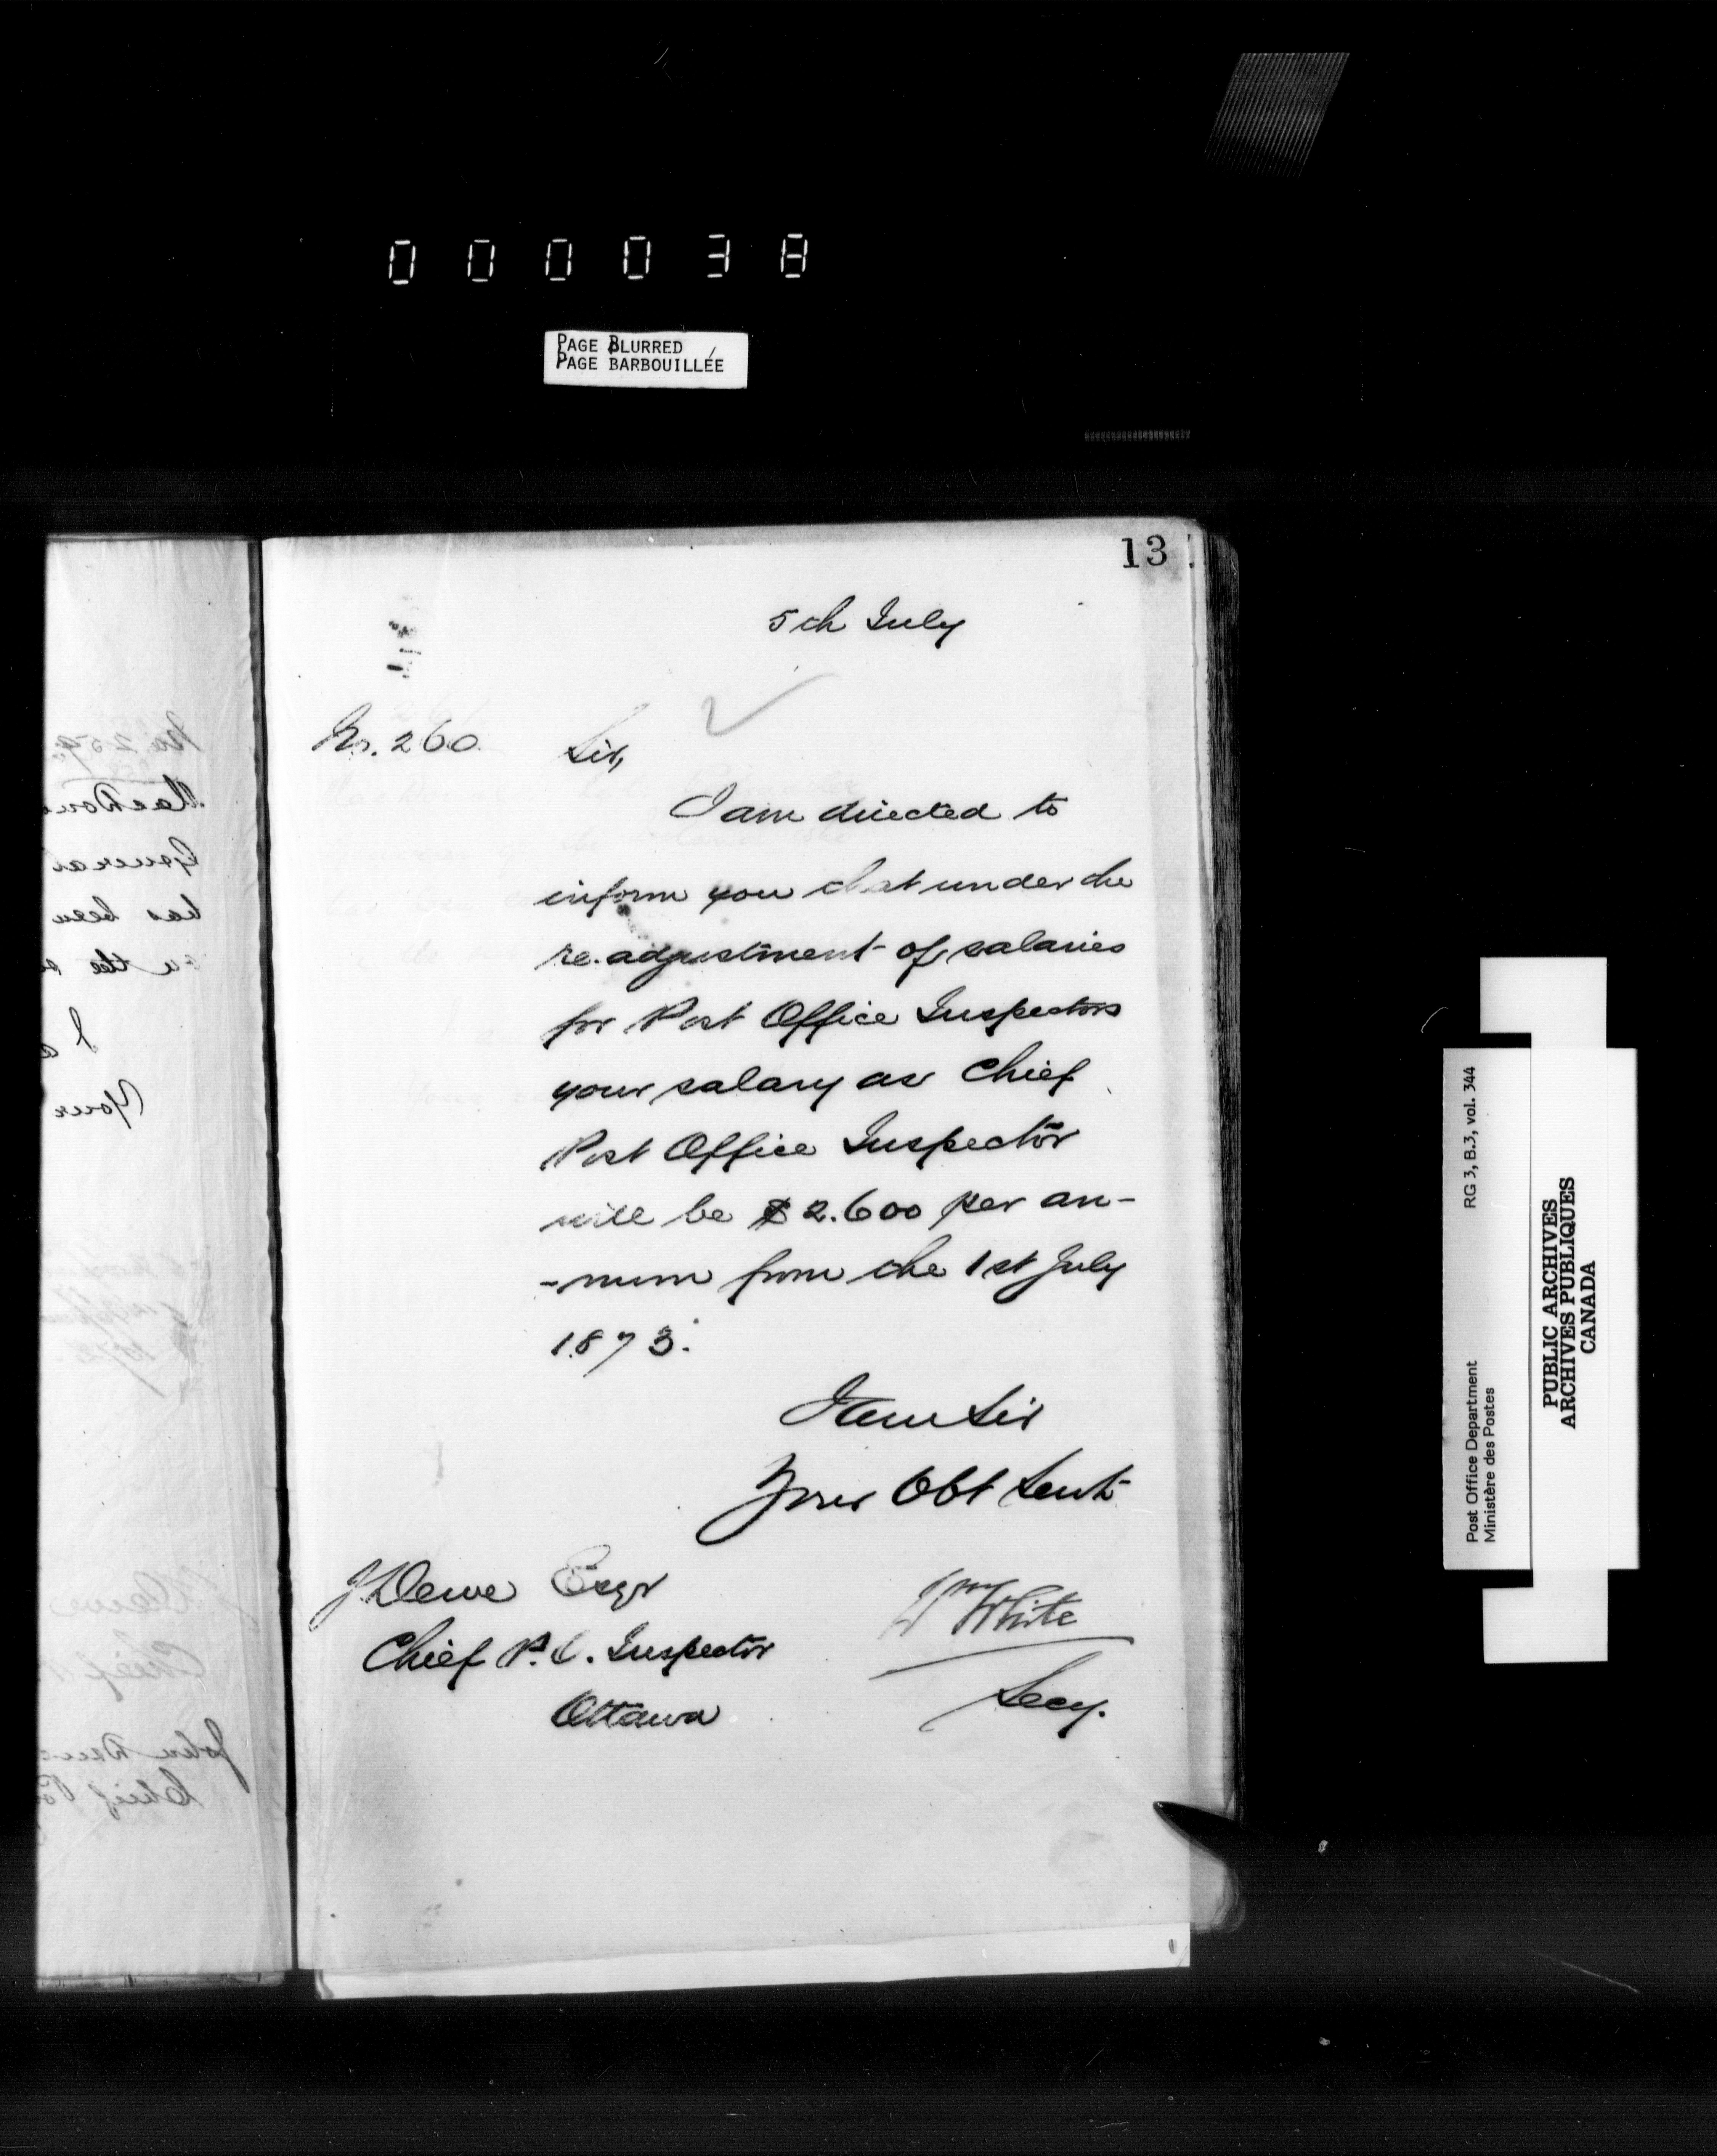 000038
PAGE BLURRED
PAGE BARBOUILLÉE
13
5th July
No. 260
Sir,
I am directed to
inform you that under the
re-adjustment of salaries
for Post Office Inspectors
your salary as Chief
Post Office Inspector
will be $2.600 per an-
-num from the 1st July
1873.
I am Sir
Your Obt Servt
J Dewe Esqr
Chief P.O. Inspector
Ottawa
Wm White
Secy.
No 259
MacDon
General
has been
in the
I a
Your
J Dewe
Chief
John Dewe
Chief Po
RG 3, B.3, vol. 344
Post Office Department
Ministère des Postes
PUBLIC ARCHIVES
ARCHIVES PUBLIQUES
CANADA